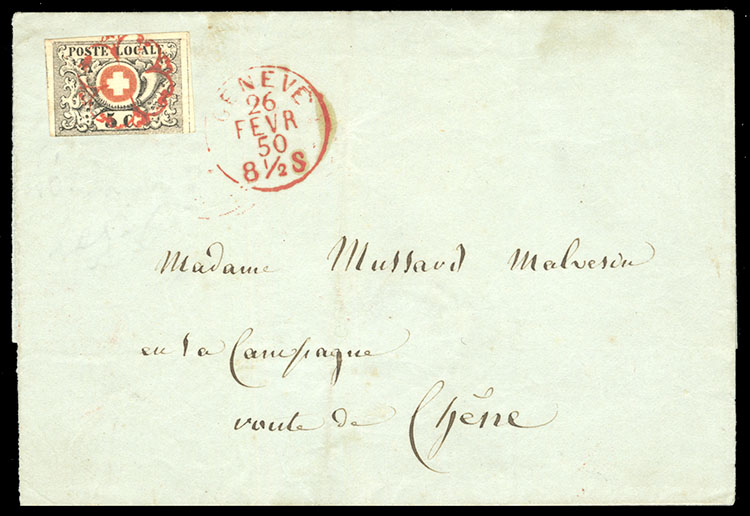 POSTE LOCALE
5 C
GENEVE
26
FEVR
50
8 1/2 S
Madame Mussard Malvesin
en sa Campagne
route de Chêne